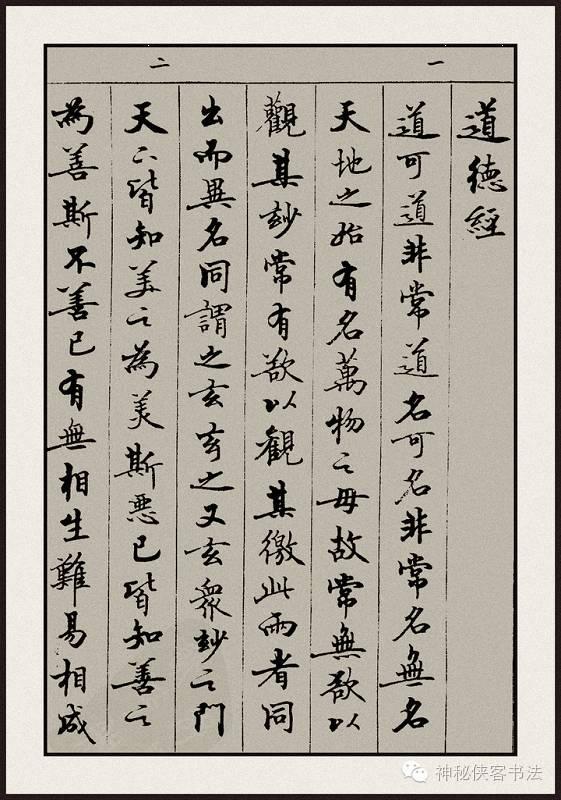 一
二
道德經
道可道非常道名可名非常名無名
天地之始有名萬物之母故常無欲以
觀其玅常有欲以觀其徼此兩者同
出而異名同謂之玄玄之又玄衆玅之門
天下皆知美之為美斯惡已皆知善之
為善斯不善已有無相生難易相成
神秘侠客书法